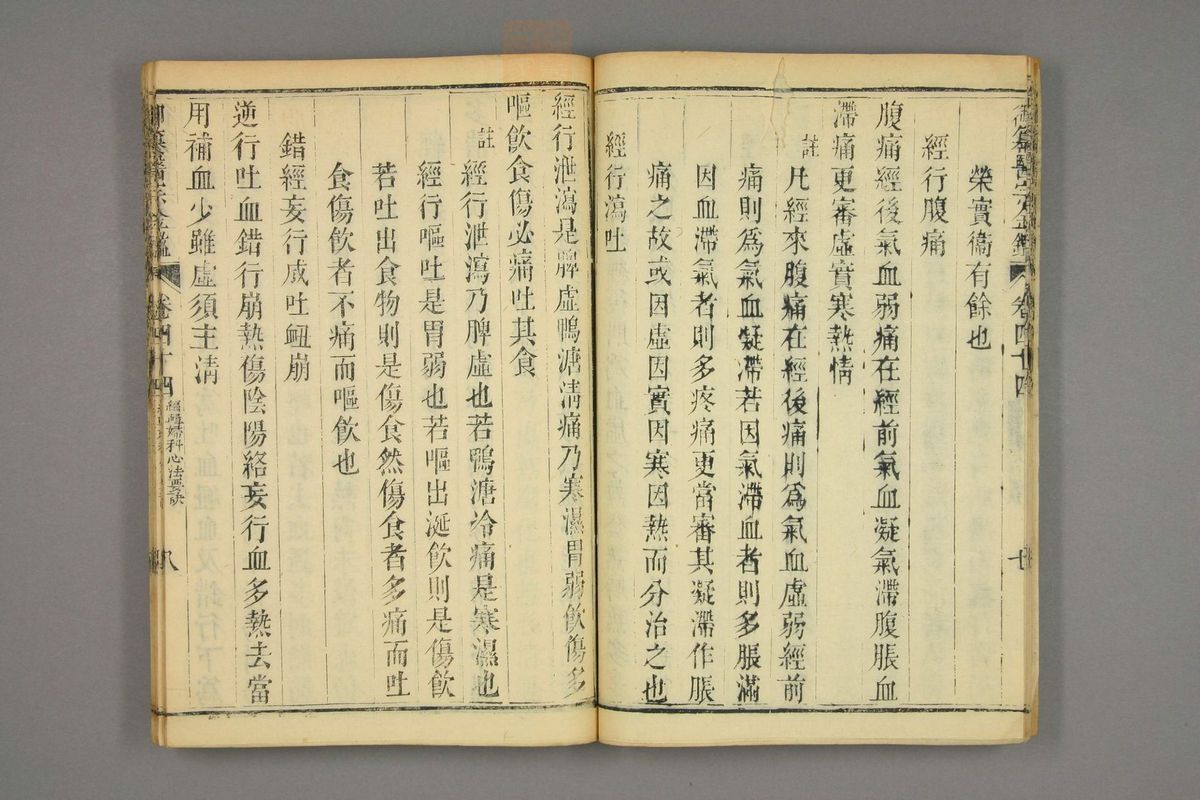 御纂醫宗金鑑 卷四十四 七
榮實衞有餘也
經行腹痛
腹痛經後氣血弱痛在經前氣血凝氣滯腹脹血
滯痛更審虛實寒熱情
註 凡經來腹痛在經後痛則爲氣血虛弱經前
痛則爲氣血凝滯若因氣滯血者則多脹滿
因血滯氣者則多疼痛更當審其凝滯作脹
痛之故或因虛因實因寒因熱而分治之也
經行瀉吐
經行泄瀉是脾虛鴨溏清痛乃寒濕胃弱飲傷多
嘔飲食傷必痛吐其食
註 經行泄瀉乃脾虛也若鴨溏冷痛是寒濕也
經行嘔吐是胃弱也若嘔出涎飲則是傷飲
若吐出食物則是傷食然傷食者多痛而吐
食傷飲者不痛而嘔飲也
錯經妄行成吐衄崩
逆行吐血錯行崩熱傷陰陽絡妄行血多熱去當
用補血少雖虛須主清
御纂醫宗金鑑 卷四十四 編輯婦科心法要訣 八